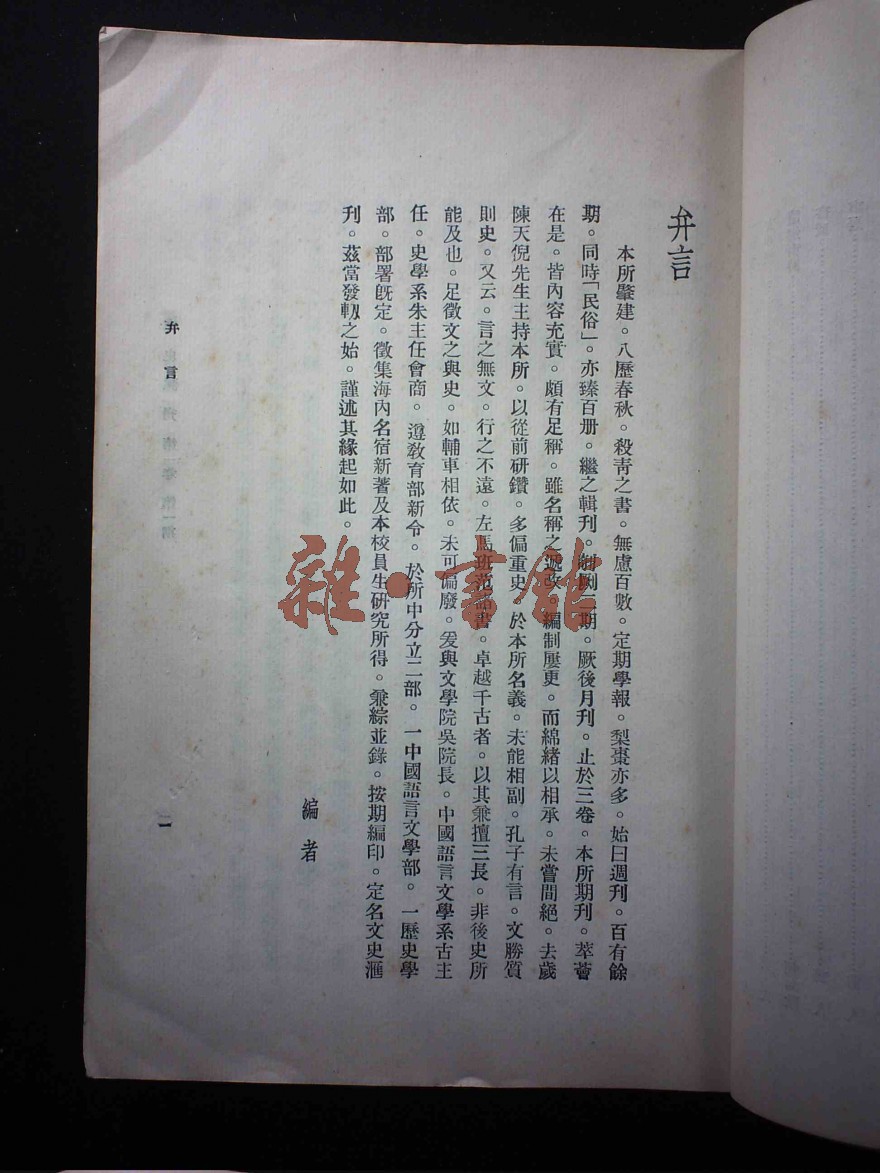 弁言
本所肇建。八歷春秋。殺靑之書。無慮百數。定期學報。梨棗亦多。始曰週刊。百有餘
期。同時「民俗」。亦臻百册。繼之輯刊。剞劂一期。厥後月刊。止於三卷。本所期刊。萃薈
在是。皆內容充實。頗有足稱。雖名稱之遞改。編制屢更。而綿緒以相承。未嘗間絕。去歲
陳天倪先生主持本所。以從前硏鑽。多偏重史。於本所名義。未能相副。孔子有言。文勝質
則史。又云。言之無文。行之不遠。左馬班范諸書。卓越千古者。以其兼擅三長。非後史所
能及也。足徵文之與史。如輔車相依。未可偏廢。爰與文學院吳院長。中國語言文學系古主
任。史學系朱主任會商。遵敎育部新令。於所中分立二部。一中國語言文學部。一歷史學
部。部署旣定。徵集海內名宿新著及本校員生硏究所得。兼綜並錄。按期編印。定名文史滙
刊。茲當發軔之始。謹述其緣起如此。
編者
弁言
一
雜·書館